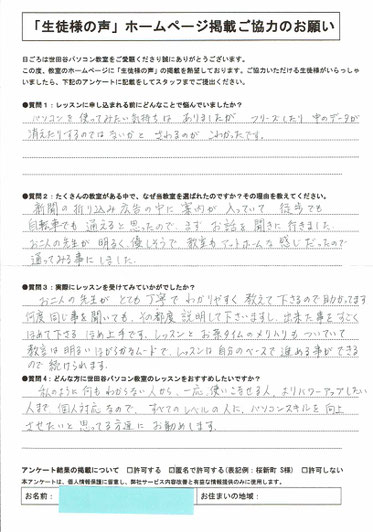 「生徒様の声」ホームページ掲載ご協力のお願い
日ごろは世田谷パソコン教室をご愛顧くださり誠にありがとうございます。
この度、教室のホームページに「生徒様の声」の掲載を熱望しております。ご協力いただける生徒様がいらっしゃ
いましたら、下記のアンケートに記載をしてスタッフまでご提出ください。
●質問1:レッスンに申し込まれる前にどんなことで悩んでいましたか?
パソコンを使ってみたい気持ちは ありましたが フリーズしたり 中のデータが
消えたりするのではないかと されるのが こわかったです。
●質問2:たくさんの教室がある中で、なぜ当教室を選ばれたのですか?その理由を教えてください。
新聞の折り込み広告の中に案内が入っていて 徒歩でも
自転車でも通えると思ったので まずお話を聞きに行きました。
お二人の先生が 明るく、優しそうで、教室もアットホームな感じだったので
通ってみる事にしました。
●質問3:実際にレッスンを受けてみていかがでしたか?
お二人の先生が とても丁寧で わかりやすく 教えて下さるので助かってます
何度同じ事を聞いても、その都度 説明して下さいますし、出来た事をすごく
ほめて下さる ほめ上手です。レッスンとお茶タイムのメリハリもついていて
教室は明るいほがらかなムードで、レッスンは自分のペースで進める事ができる
ので続けられます。
●質問4:どんな方に世田谷パソコン教室のレッスンをおすすめしたいですか?
私のように何もわからない人から、一応、使いこなせる人、よりパワーアップしたい
人まで 個人対応なので、すべてのレベルの人に、パソコンスキルを向上
させたいと思ってる方達に お勧めします。
アンケート結果の掲載について □許可する ☑匿名で許可する(表記例:桜新町 S様) □許可しない
本アンケートは、個人情報保護に留意し、弊社サービス内容改善と有益な情報提供のみに使用します。
お名前: お住まいの地域: